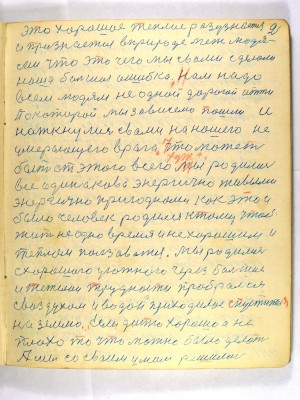 это хорошее теплое раздуется 2
и признается в природе меж людя-
ми что это чего мы с вами сделали
наша большая ошибка. Нам надо
всем людям не одной дорогой итти
по которой мы зависимо пошли и
наткнулися с вами на нашего не
умирающего врага, что может
быть от этого всего. Мы родилися
все одинаково энергично живыми
энергично пригодными как это и
было человек родился к тому чтоб
жить не одно время и не хорошим и
теплом пользоватся. Мы родилися
с хорошего уютного через большие
и тяжелые трудности пробрался
с воздухом и водой приходилось спуститься
на землю, если дитю хорошо а не
плохо то что можно было делать
А мы со своим умом решили